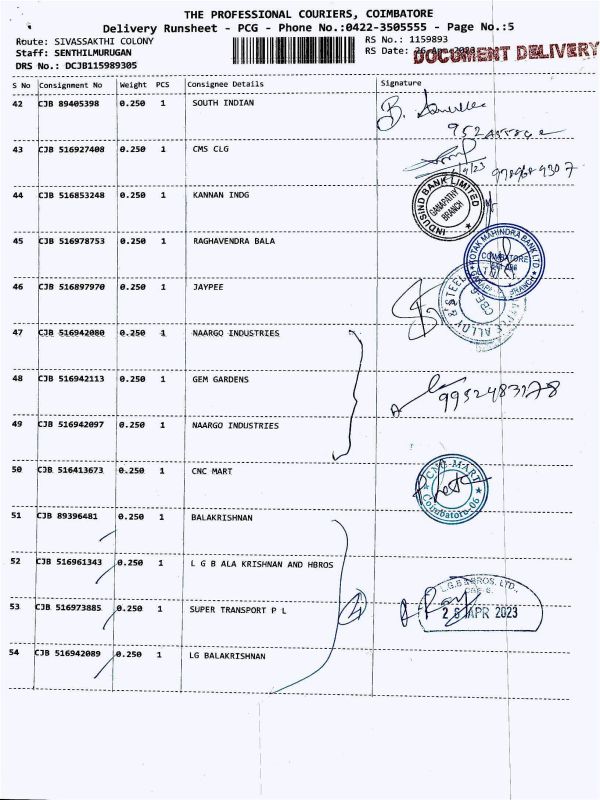 THE PROFESSIONAL COURIERS, COIMBATORE
Delivery Runsheet - PCG - Phone No.:0422-3505555 - Page No.:5
Route: SIVASSAKTHI COLONY
RS No.: 1159893
Staff: SENTHILMURUGAN
RS Date: 26 Apr 2023
DOCUMENT DELIVERY
DRS No.: DCJB115989305
S No Consignment No Weight PCS Consignee Details Signature
42 CJB 89405398 0.250 1 SOUTH INDIAN
43 CJB 516927408 0.250 1 CMS CLG
9789689307
44 CJB 516853248 0.250 1 KANNAN INDG
INDUSIND BANK LIMITED
GANAPATHY
BRANCH
45 CJB 516978753 0.250 1 RAGHAVENDRA BALA
KOTAK MAHINDRA BANK LTD
COIMBATORE
BRANCH
46 CJB 516897970 0.250 1 JAYPEE
ALLOY & STEEL
CBE-6
47 CJB 516942080 0.250 1 NAARGO INDUSTRIES
48 CJB 516942113 0.250 1 GEM GARDENS
9952483178
49 CJB 516942097 0.250 1 NAARGO INDUSTRIES
50 CJB 516413673 0.250 1 CNC MART
CNC-MART
Coimbatore-06
51 CJB 89396481 0.250 1 BALAKRISHNAN
52 CJB 516961343 0.250 1 L G B ALA KRISHNAN AND HBROS
L.G.B & BROS. LTD.,
CBE-6.
53 CJB 516973885 0.250 1 SUPER TRANSPORT P L
4
26 APR 2023
54 CJB 516942089 0.250 1 LG BALAKRISHNAN